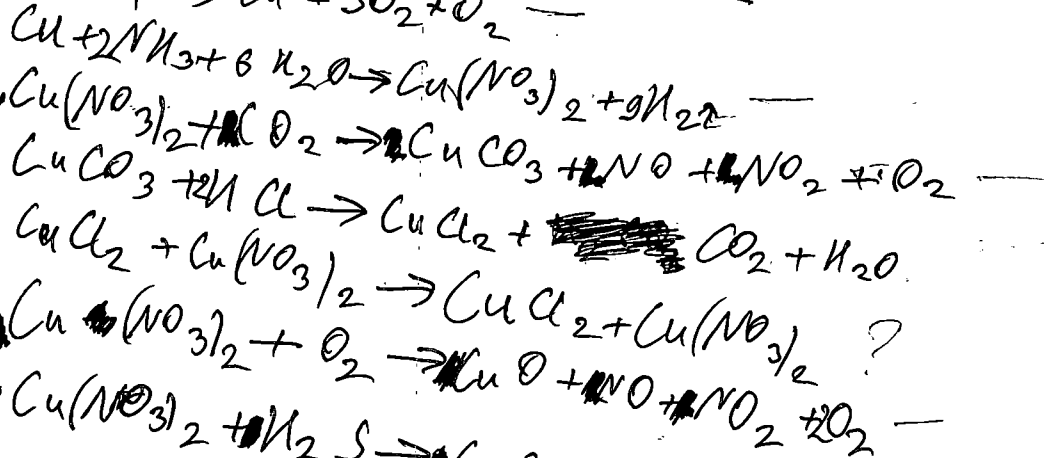 SO2+O2 —
Cu+2NH3+6H2O→Cu(NO3)2+9H2↑ —
Cu(NO3)2+CO2→CuCO3+NO+NO2+O2 —
CuCO3+2HCl→CuCl2+CO2+H2O
CuCl2+Cu(NO3)2→CuCl2+Cu(NO3)2 ?
Cu(NO3)2+O2→CuO+NO+NO2+2O2 —
Cu(NO3)2+H2S→